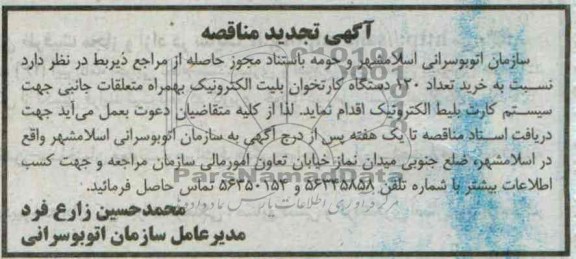 آگهی تجدید مناقصه
سازمان اتوبوسرانی اسلامشهر و حومه باستناد مجوز حاصله از مراجع ذیربط در نظر دارد
نسبت به خرید تعداد ۱۲۰ دستگاه کارتخوان بلیت الکترونیک بهمراه متعلقات جانبی جهت
سیستم کارت بلیط الکترونیک اقدام نماید. لذا از کلیه متقاضیان دعوت بعمل می‌آید جهت
دریافت اسناد مناقصه تا یک هفته پس از درج آگهی به سازمان اتوبوسرانی اسلامشهر واقع
در اسلامشهر، ضلع جنوبی میدان نماز خیابان تعاون امورمالی سازمان مراجعه و جهت کسب
اطلاعات بیشتر با شماره تلفن ۵۶۳۴۵۸۵۸ و ۵۶۳۵۰۱۵۳ تماس حاصل فرمائید.
ParsNamadData
محمدحسین زارع فرد
مدیرعامل سازمان اتوبوسرانی